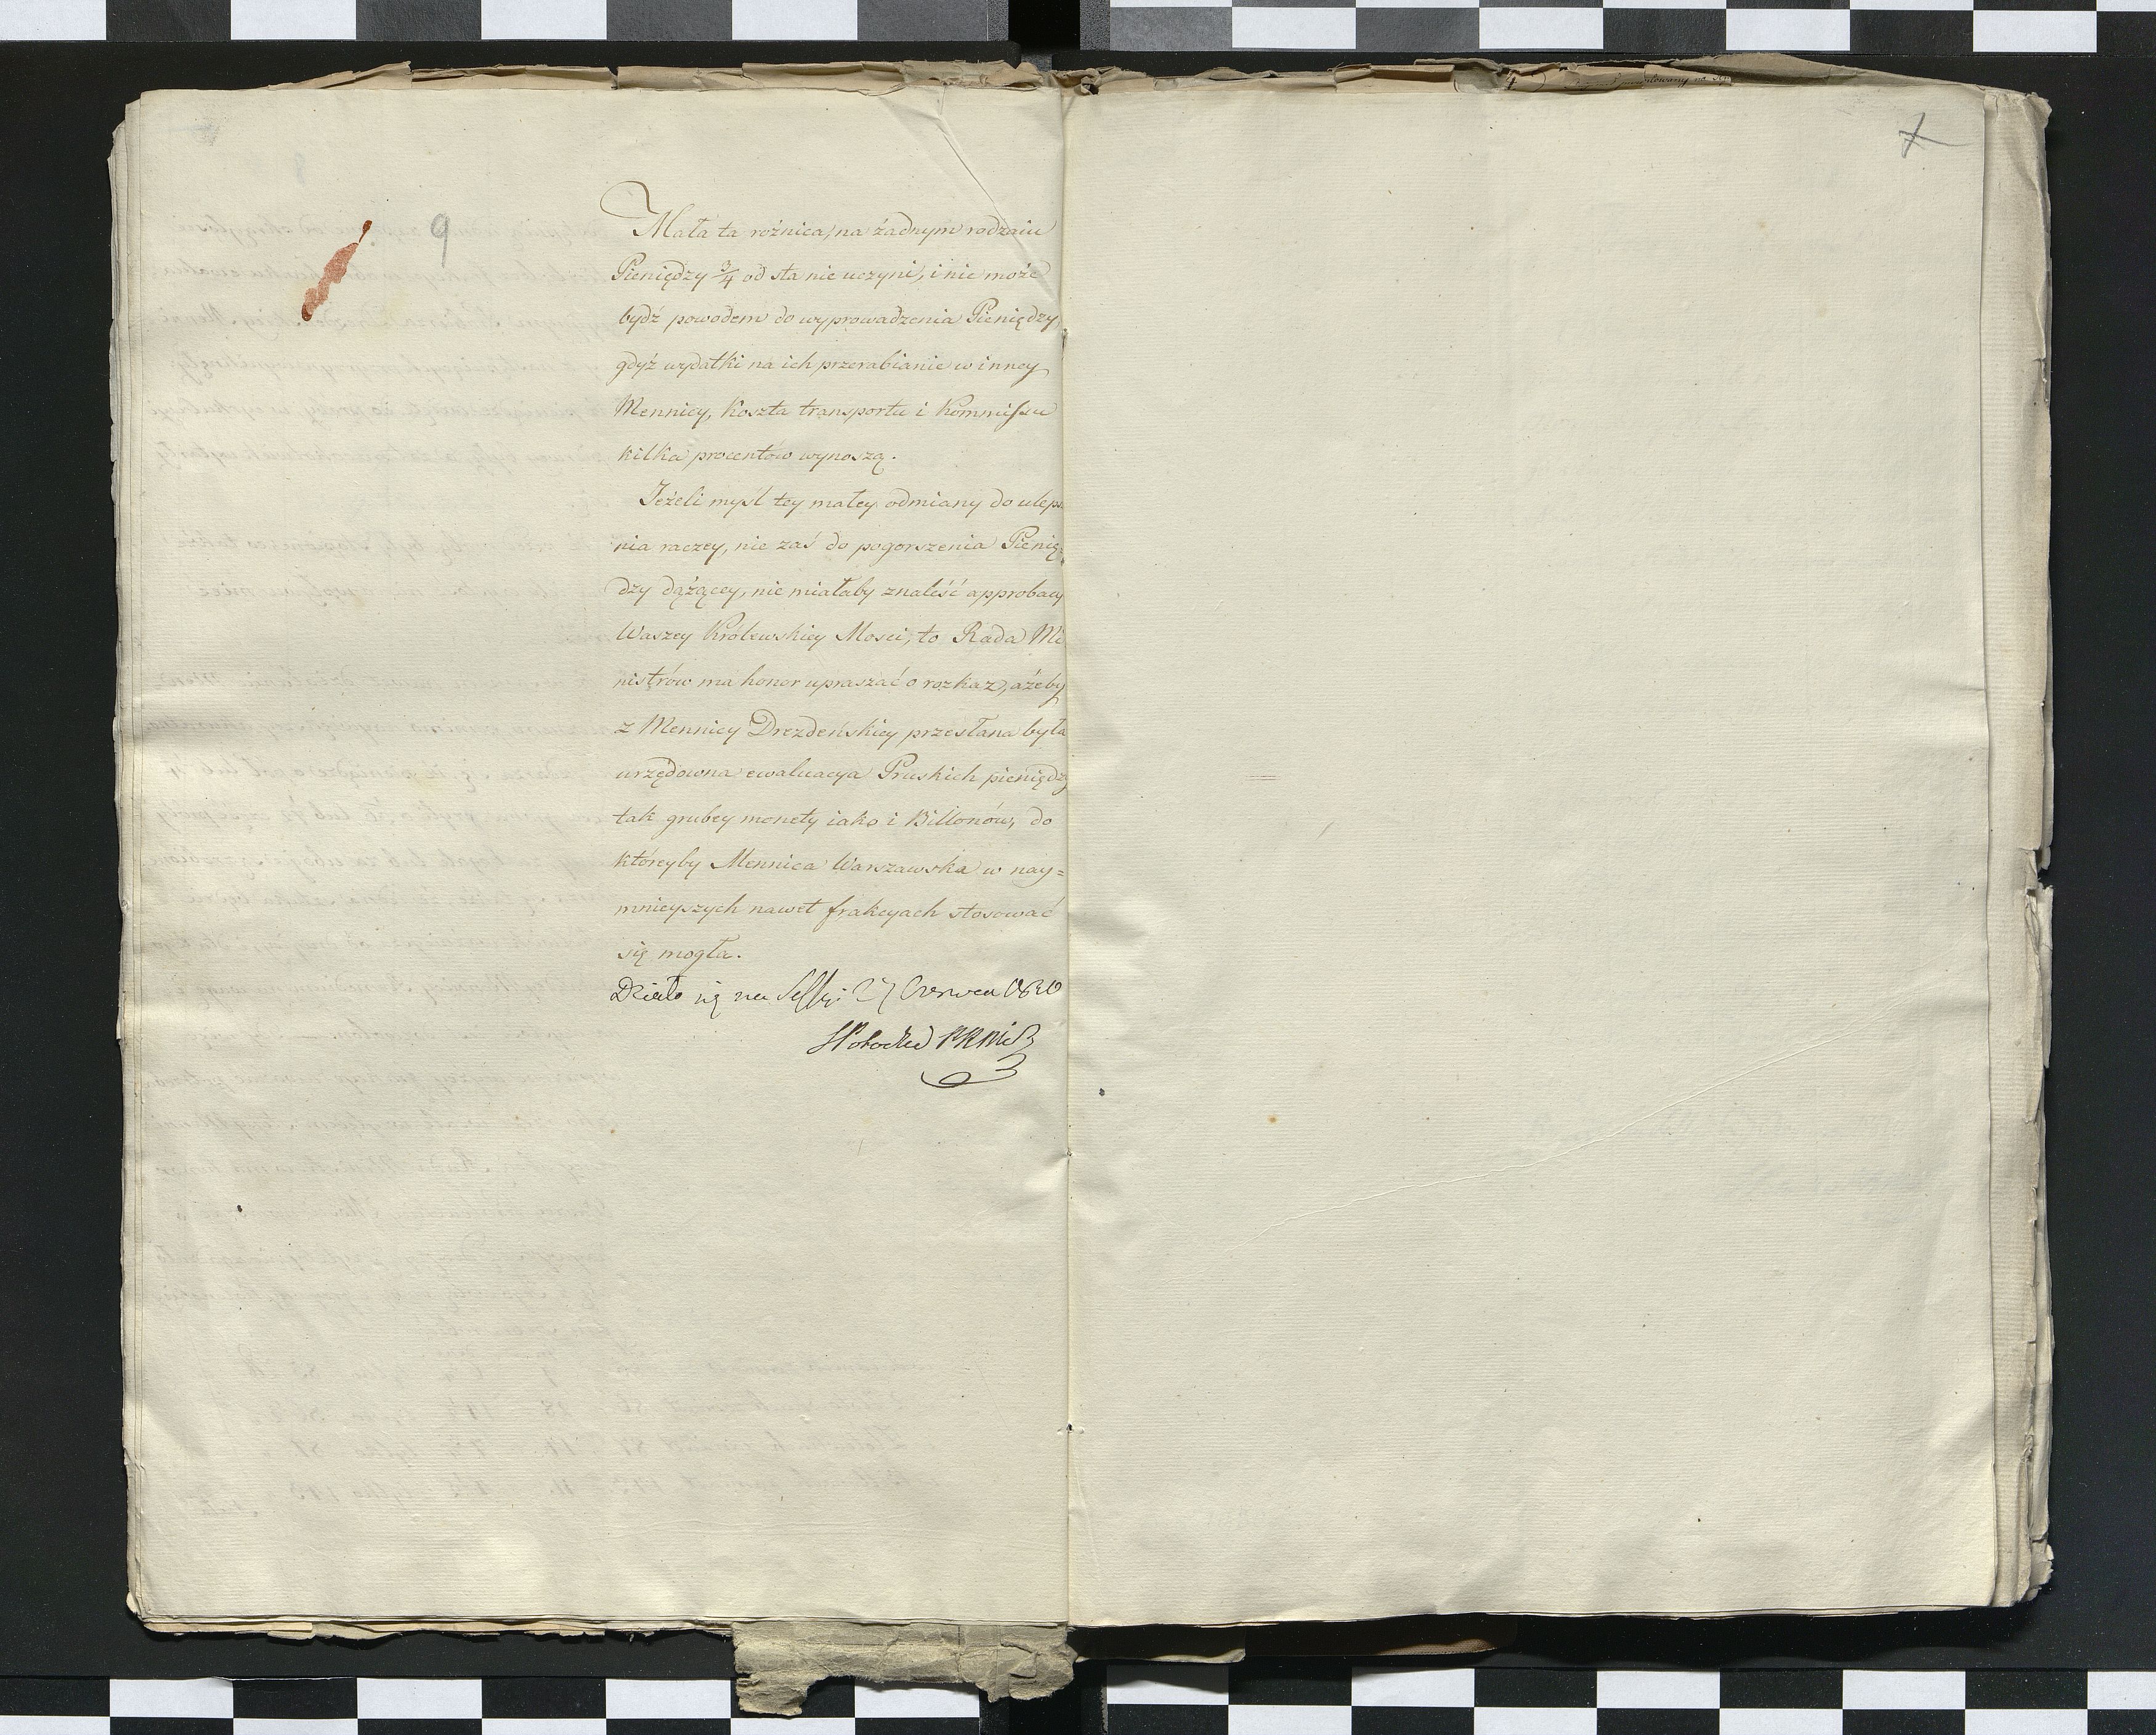 9
Mała ta rożnica, na żadnym rodzaiu
Pieniędzy 3/4 od sta nie uczyni, i nie może
bydź powodem do wyprowadzenia Pieniędzy,
gdyż wydatki na ich przerabianie w inney
Mennicy, Koszta transportu i Kommissu
kilka procentów wynoszą.
Jeżeli myśl tey małey odmiany do uleps
nia raczey, nie zaś do pogorszenia Pienię=
dzy dążącey, nie miałaby znaleść approbacy
Waszey Królewskiey Mosci, to Rada Mi
nistrów ma honor upraszać o rozkaz, ażeby
z Mennicy Drezdeńskiey przesłana była
urzędowna ewaluacya Pruskich pieniędzy
tak grubey monety iako i Billonów, do
któreyby Mennica Warszawska w nay=
mnieyszych nawet frakcyach stosować
się mogła.
Działo się na Sessyi 27 Czerwca 1810